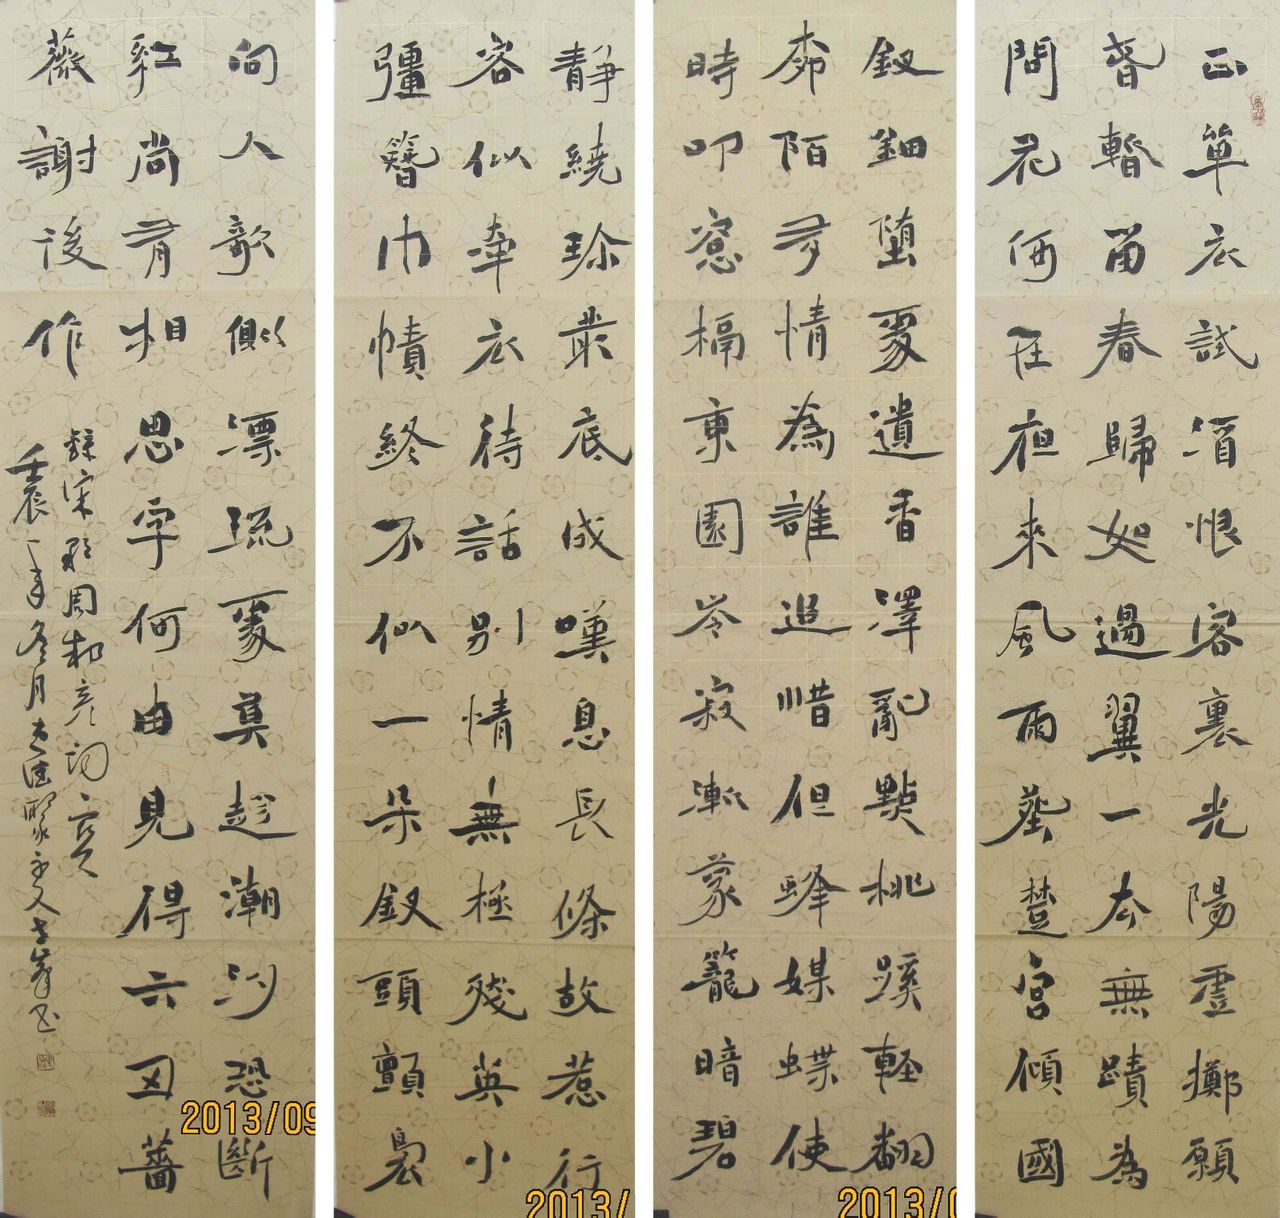 正單衣試酒恨客裏光陽虛擲願
春暫留春歸如過翼一去無蹟為
問花何在夜來風雨葬楚宮傾國
釵鈿墮處遺香澤亂點桃蹊輕翻
柳陌多情為誰追惜但蜂媒蝶使
時叩窓槅東園岑寂漸蒙籠暗碧
靜繞珍叢底成嘆息長條故惹行
客似牽衣待話別情無極殘英小
彊簪巾幘終不似一朵釵頭顫裊
向人欹側漂流處莫趁潮汐恐斷
紅尚有相思字何由見得六丑薔
薇謝後作
錄宋 周邦彥詞
壬辰年冬月
2013/09
2013/
2013/0